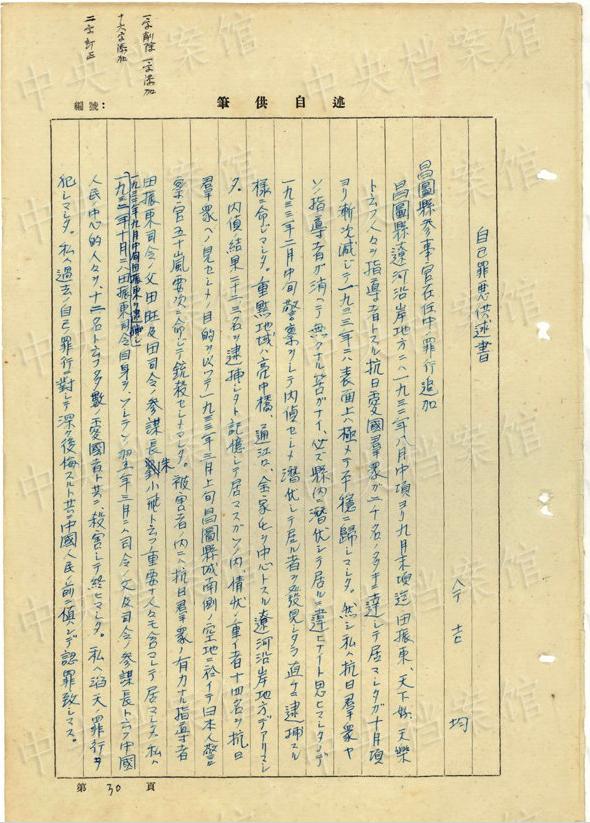 一字削除 一字添加
十六字添加
二字訂正
編號：
述自供筆
自己罪悪供述書
今吉 均
昌圖縣参事官在任中ノ罪行追加
昌圖縣遼河沿岸地方ニハ一九三二年八月中項ヨリ九月末項迄田振東、天下好、天樂
トユフ人々ヲ指導者トスル抗日愛國羣衆ガ二千名ノ多キニ達シテ居マシタガ十月項
ヨリ漸次減ジテ一九三三年ニハ表面上ハ極メテ平穏ニ歸シマシタ。然シ私ハ抗日羣衆ヤ
ソノ指導者ガ消ヘテ無クナル筈ガナイ、必ズ縣内ニ潜伏シテ居ルニ違ヒナイト思ヒマシタノデ
一九三三年二月中旬警察ヲシテ内偵セシメ潜伏シテ居ル者ヲ發見シタラ直ケニ逮捕スル
様ニ命ジマシタ。重點地域ハ亮中橋、通江口、金家屯ヲ中心トスル遼河沿岸地方デアリマシ
タ。内偵結果二十二、三名ヲ逮捕シタト記憶シテ居マスガソノ内、情状ノ重イ者十四名ヲ抗日
羣衆ヘノ見セシメノ目的ヲ以ツテ一九三三年三月上旬昌圖縣城南側ノ空地ニ於イテ日本人警
察官五十嵐要次ニ命ジテ銃殺セシメマシタ。被害者内ニハ抗日羣衆ノ有力ナル指導者
田振東司令ノ父田旺及田司令ノ参謀長朱小航トユフ重要ナ人々モ含マレテ居マシタ。私ハ
一九三二年九月中旬田振東ヲ逮捕シ
一九三二年十月ニハ田振東司令自身ヲ、ソシテソノ翌年三月ニハ司令ノ父及司令ノ参謀長トユフ中國
人民ノ中心的人々ヲ、十二名トユフ多數ノ愛國者ト共ニ殺害シテ終ヒマシタ。私ハ滔天ノ罪行ヲ
犯シマシタ。私ハ過去ノ自己ノ罪行ニ對シテ深ク後悔スルト共ニ中國人民ノ前ニ慎シンデ認罪致シマス。
第 30 頁
中央档案馆